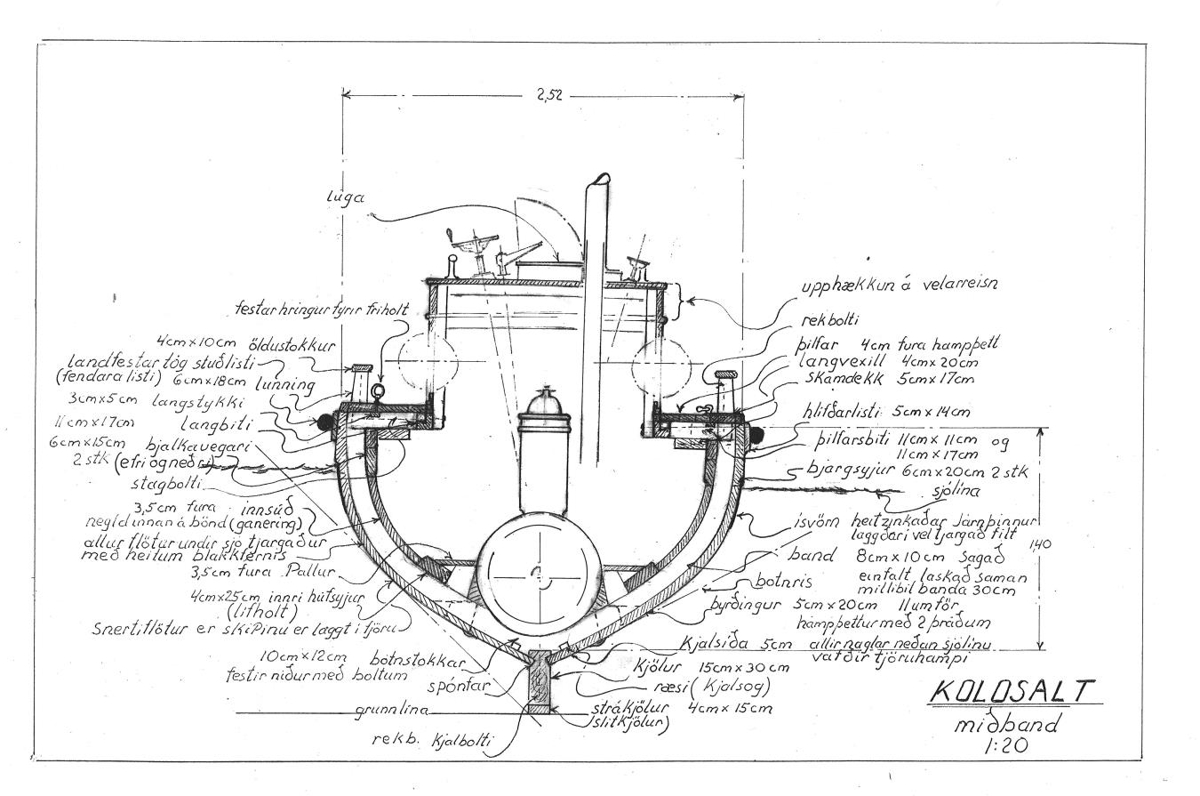 2,52
lúga
festarhringur fyrir friholt
4cm x 10cm öldustokkur
landfestar tóg stuðlisti
(fendara listi) 6cm x 18cm lunning
3cm x 5cm langstykki
11cm x 17cm langbiti
6cm x 15cm bjalkavegari
2 stk (efri og neðri)
stagbolti
3,5cm fura innsúð
negld innan á bönd (ganering)
allur flötur undir sjó tjargaður
með heitum blakkfernis
3,5cm fura Pallur
4cm x 25cm innri húfsyjur
(lífholt)
Snertiflötur er skipinu er laggt i tjöru
10cm x 12cm botnstokkar
festir niður með boltum
spónfar
grunnlina
rekb. Kjalbolti
upphækkun á velarreisn
rekbolti
þilfar 4cm fura hampþett
langvexill 4cm x 20cm
skamdekk 5cm x 17cm
hlifðarlisti 5cm x 14cm
þilfarsbiti 11cm x 11cm og
11cm x 17cm
bjargsyjur 6cm x 20cm 2 stk
sjólina
ísvörn heitzinkaðar Járnþinnur
laggðar í vel tjargað filt
1,40
band 8cm x 10cm Sagað
einfalt laskað saman
millibil banda 30cm
botnris
byrðingur 5cm x 20cm 11 umför
hampþettur með 2 þráðum
Kjalsíða 5cm allir naglar neðan sjólinu
vafðir tjöruhampi
Kjölur 15cm x 30cm
ræsi (Kjalsog)
strákjölur 4cm x 15cm
(slitkjölur)
KOLOSALT
miðband
1:20